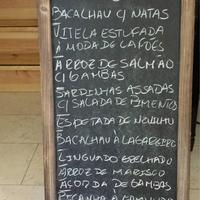 BACALHAU C/ NATAS
VITELA ESTUFADA
À MODA DE LAFÕES
ARROZ DE SALMÃO
C/ GAMBAS
SARDINHAS ASSADAS
C/ SALADA DE PIMENTOS
ESPETADA DE NOVILHO
BACALHAU À LAGAREIRO
LINGUADO GRELHADO
ARROZ DE MARISCO
AÇORDA DE GAMBAS
PICANHA